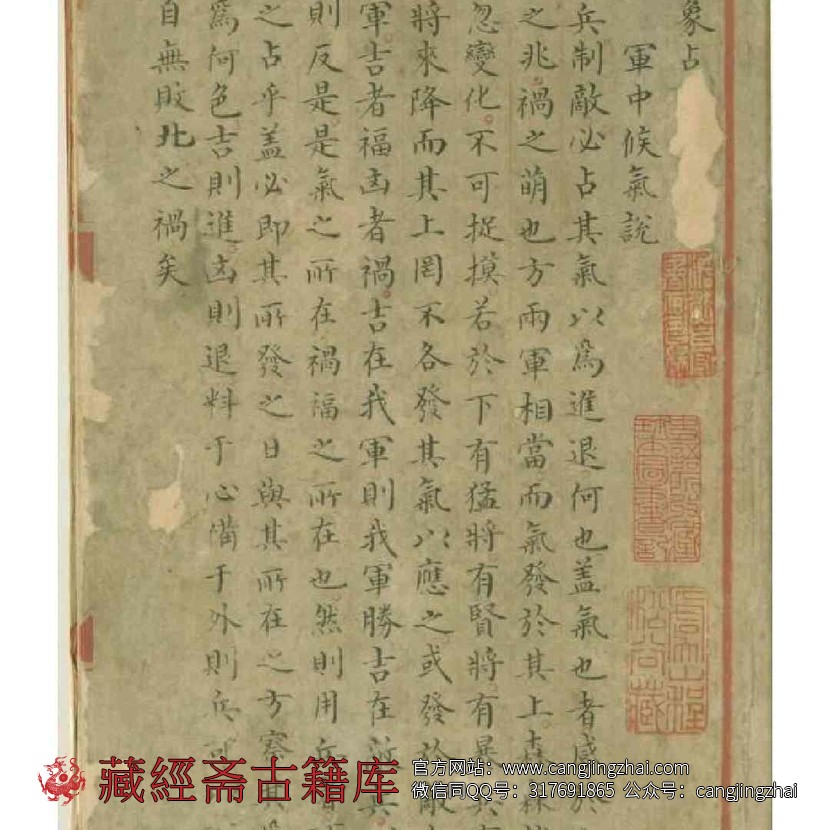 象占
軍中候氣說
兵制敵必占其氣以爲進退何也盖氣也者感於
之兆禍之萌也方兩軍相當而氣發於其上
忽變化不可捉摸若於下有猛將有賢將有暴
將來降而其上罔不各發其氣以應之或發於
軍吉者福凶者禍吉在我軍則我軍勝吉在
則反是是氣之所在禍福之所在也然則用兵
之占乎盖必即其所發之日與其所在之方察其
爲何色吉則進凶則退料于心備于外則兵可
自無敗北之禍矣
藏經斋古籍库
官方网站：www.cangjingzhai.com
微信同QQ号：317691865 公众号：cangjingzhai